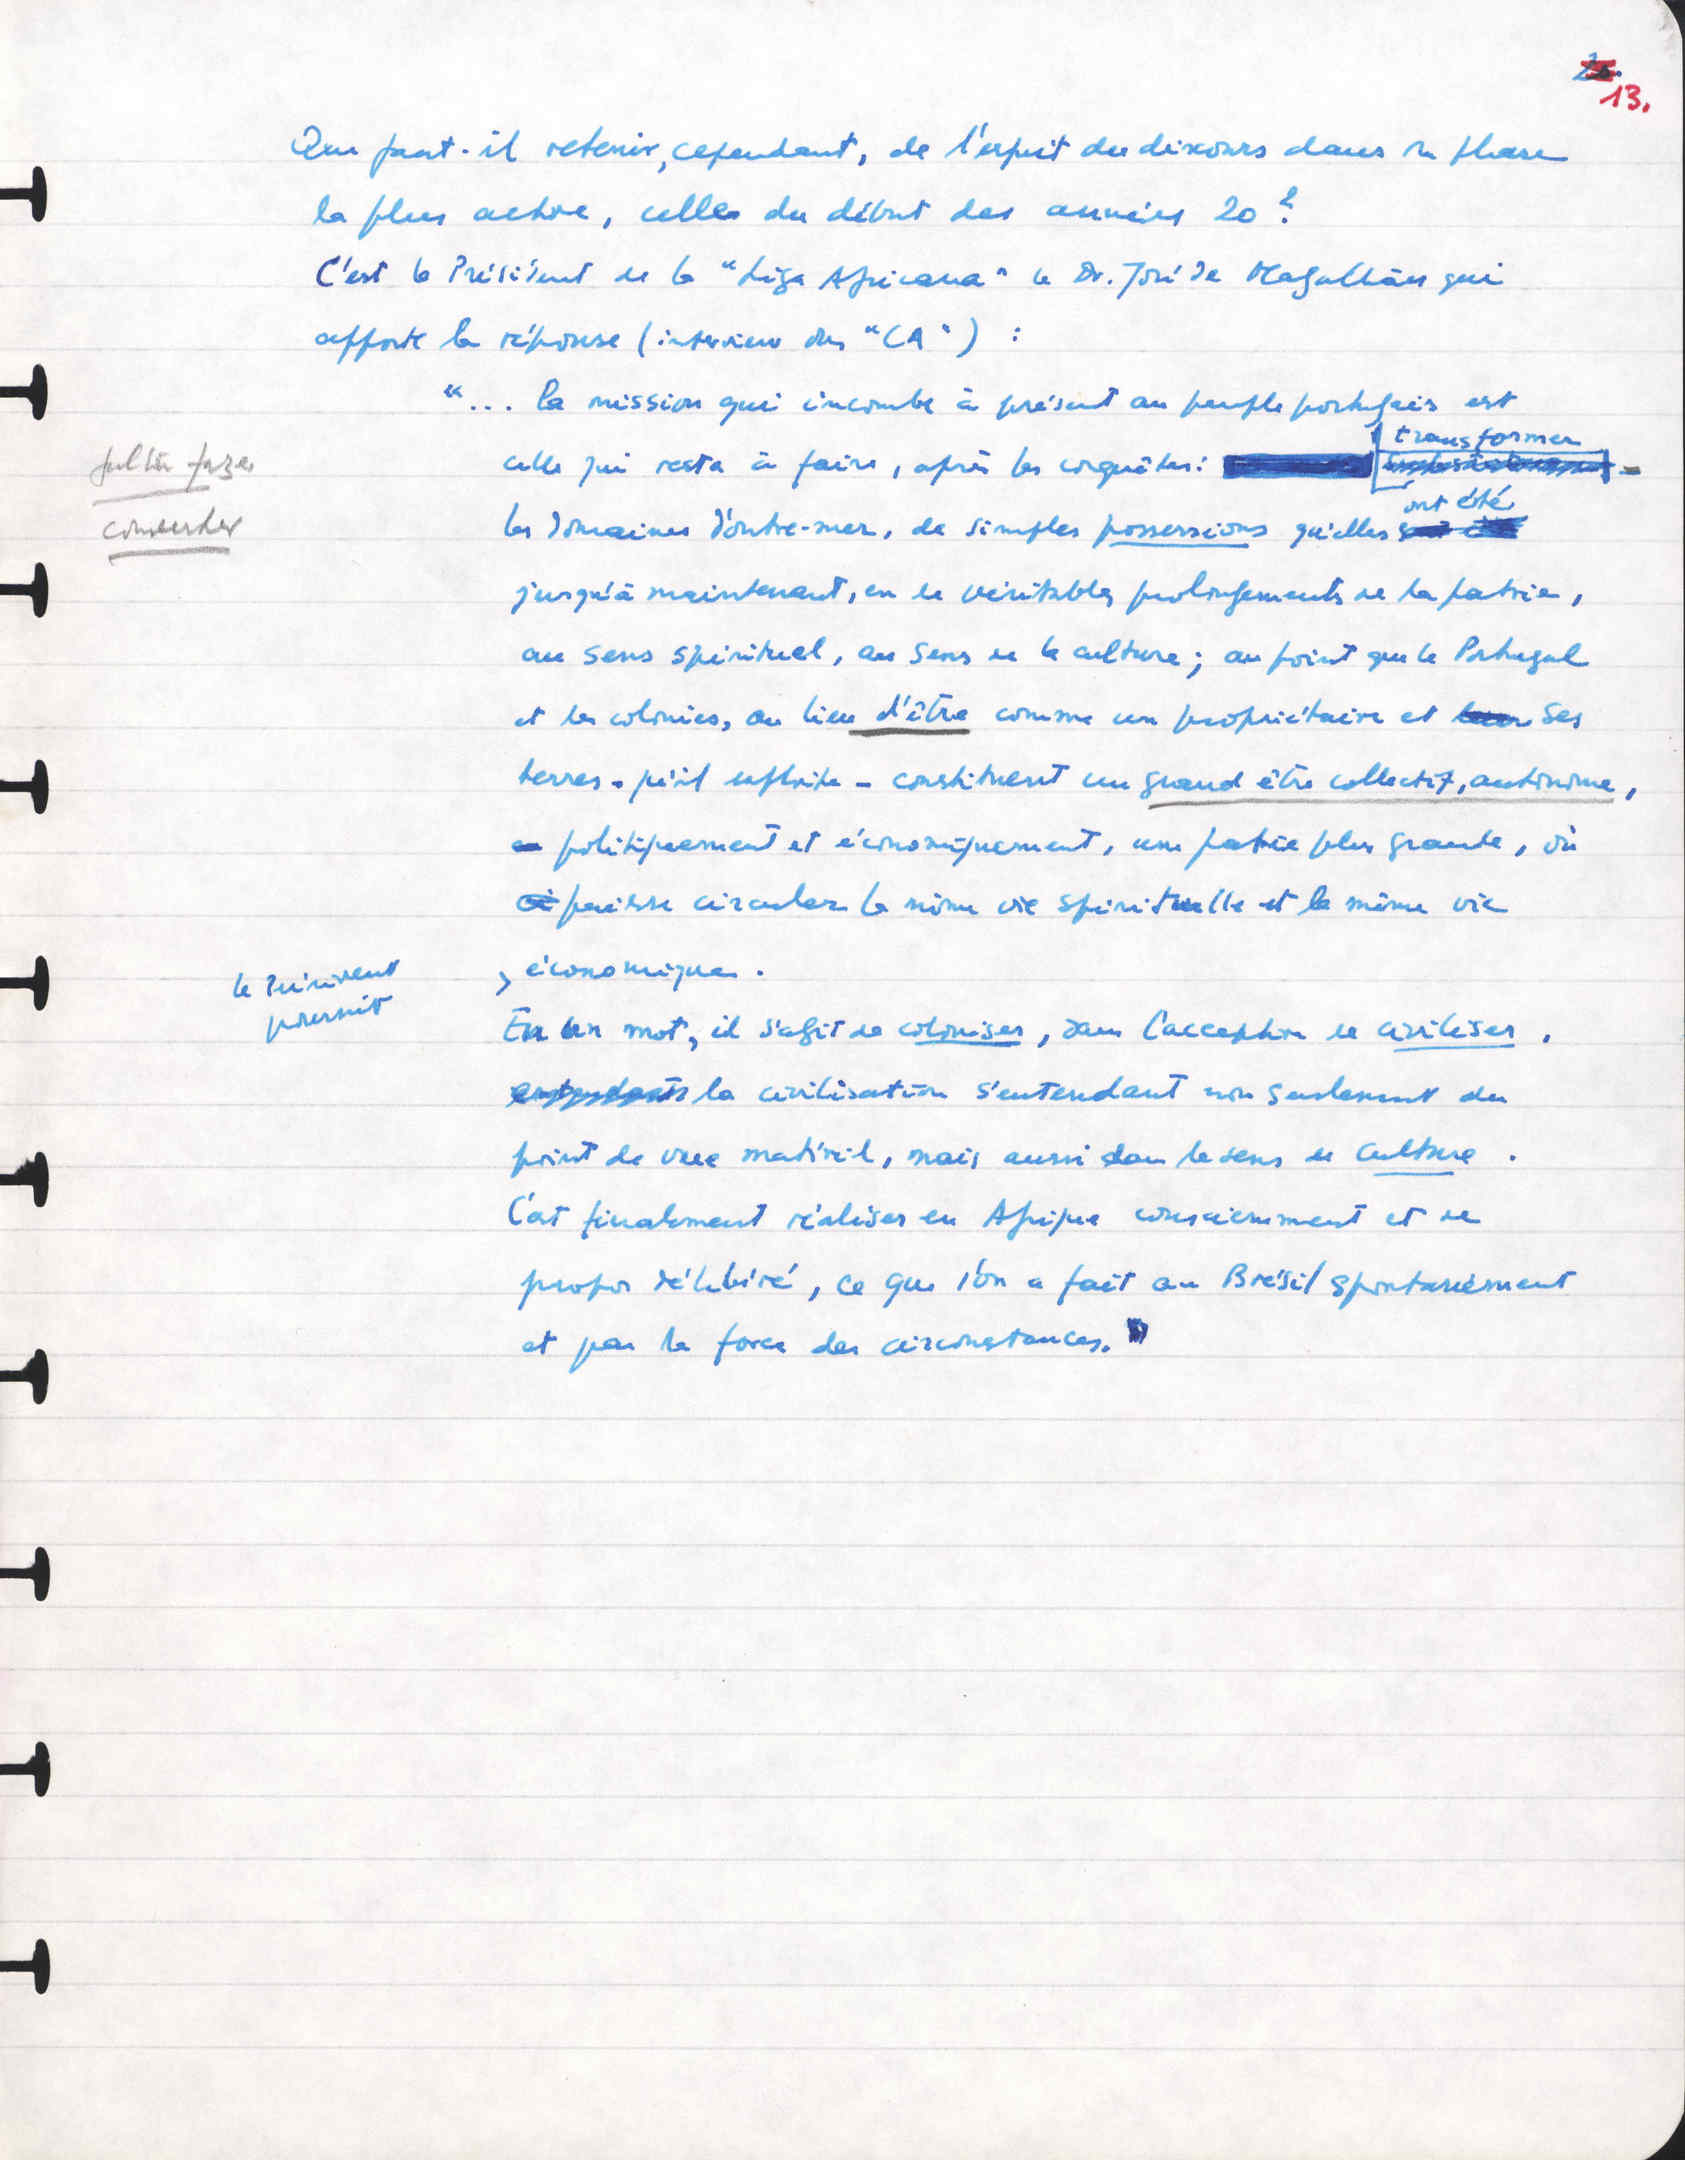 13.
Que faut-il retenir, cependant, de l'esprit du discours dans sa phase
la plus active, celle du début des années 20 ?
C'est le Président de la "Liga Africana" le Dr. José de Magalhães qui
apporte la réponse (interview au "CA") :
"... la mission qui incombe à présent au peuple portugais est
transformer
celle qui resta à faire, après les conquêtes :
ont été
les domaines d'outre-mer, de simples possessions qu'elles
jusqu'à maintenant, en de véritables prolongements de la patrie,
au sens spirituel, au sens de la culture ; au point que le Portugal
et les colonies, au lieu d'être comme un propriétaire et ses
terres - qu'il exploite - constituent un grand être collectif, autonome,
politiquement et économiquement, une patrie plus grande, où
puisse circuler la même vie spirituelle et la même vie
économique.
le Président
poursuit
En un mot, il s'agit de coloniser, dans l'acception de civiliser,
la civilisation s'entendant non seulement du
point de vue matériel, mais aussi dans le sens de culture.
C'est finalement réaliser en Afrique consciemment et de
propos délibéré, ce que l'on a fait au Brésil spontanément
et par la force des circonstances."
faltou fazer
converter